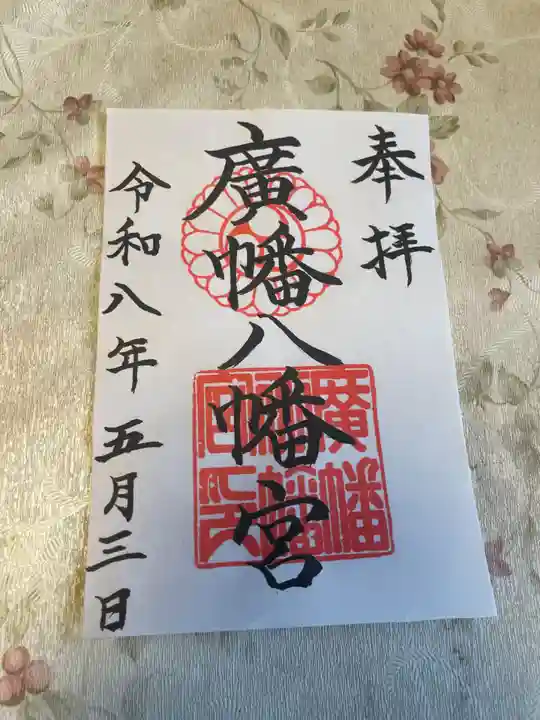 奉拝
廣幡八幡宮
廣幡八幡宮印
令和八年五月三日